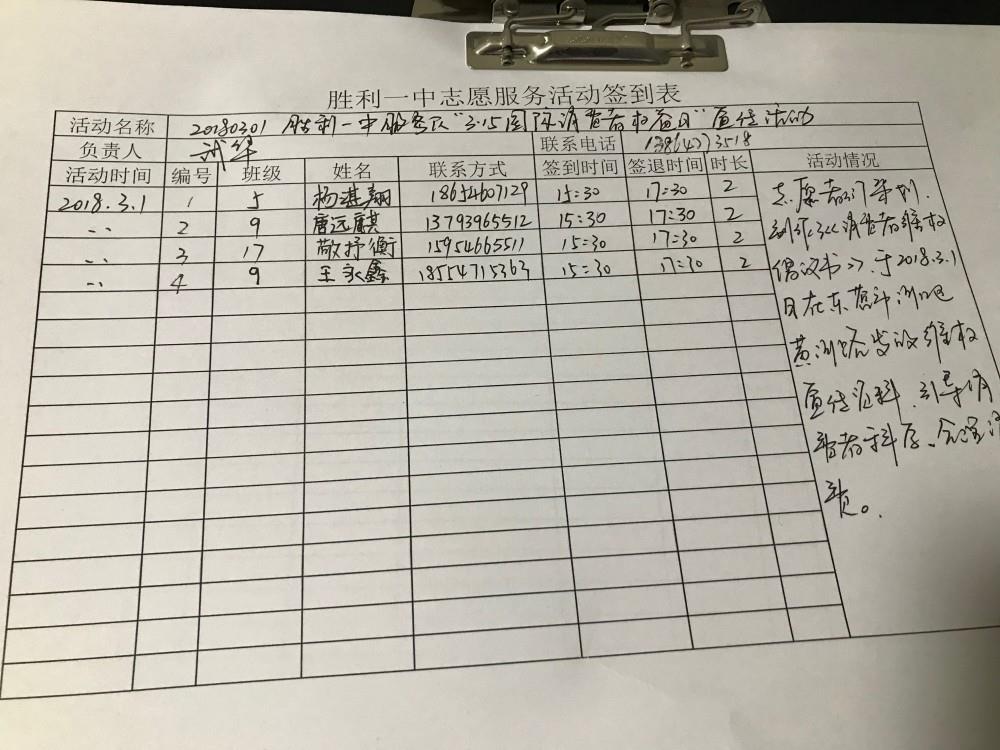 胜利一中志愿服务活动签到表
活动名称 20180301 胜利一中服务队"3·15国际消费者权益日"宣传活动
负责人 武华 联系电话
活动时间 编号 班级 姓名 联系方式 签到时间 签退时间 时长 活动情况
2018.3.1 1 5 杨湛翔 18654607129 15:30 17:30 2
〃 2 9 唐远麒 13793965512 15:30 17:30 2
〃 3 17 敬抒衡 15954665511 15:30 17:30 2
〃 4 9 王永鑫 18554715363 15:30 17:30 2
志愿者们策划.
制作《《消费者维权
倡议书》》.于2018.3.1
日在东营市
发放维权
宣传资料.引导消
费者科学、合理消
费。